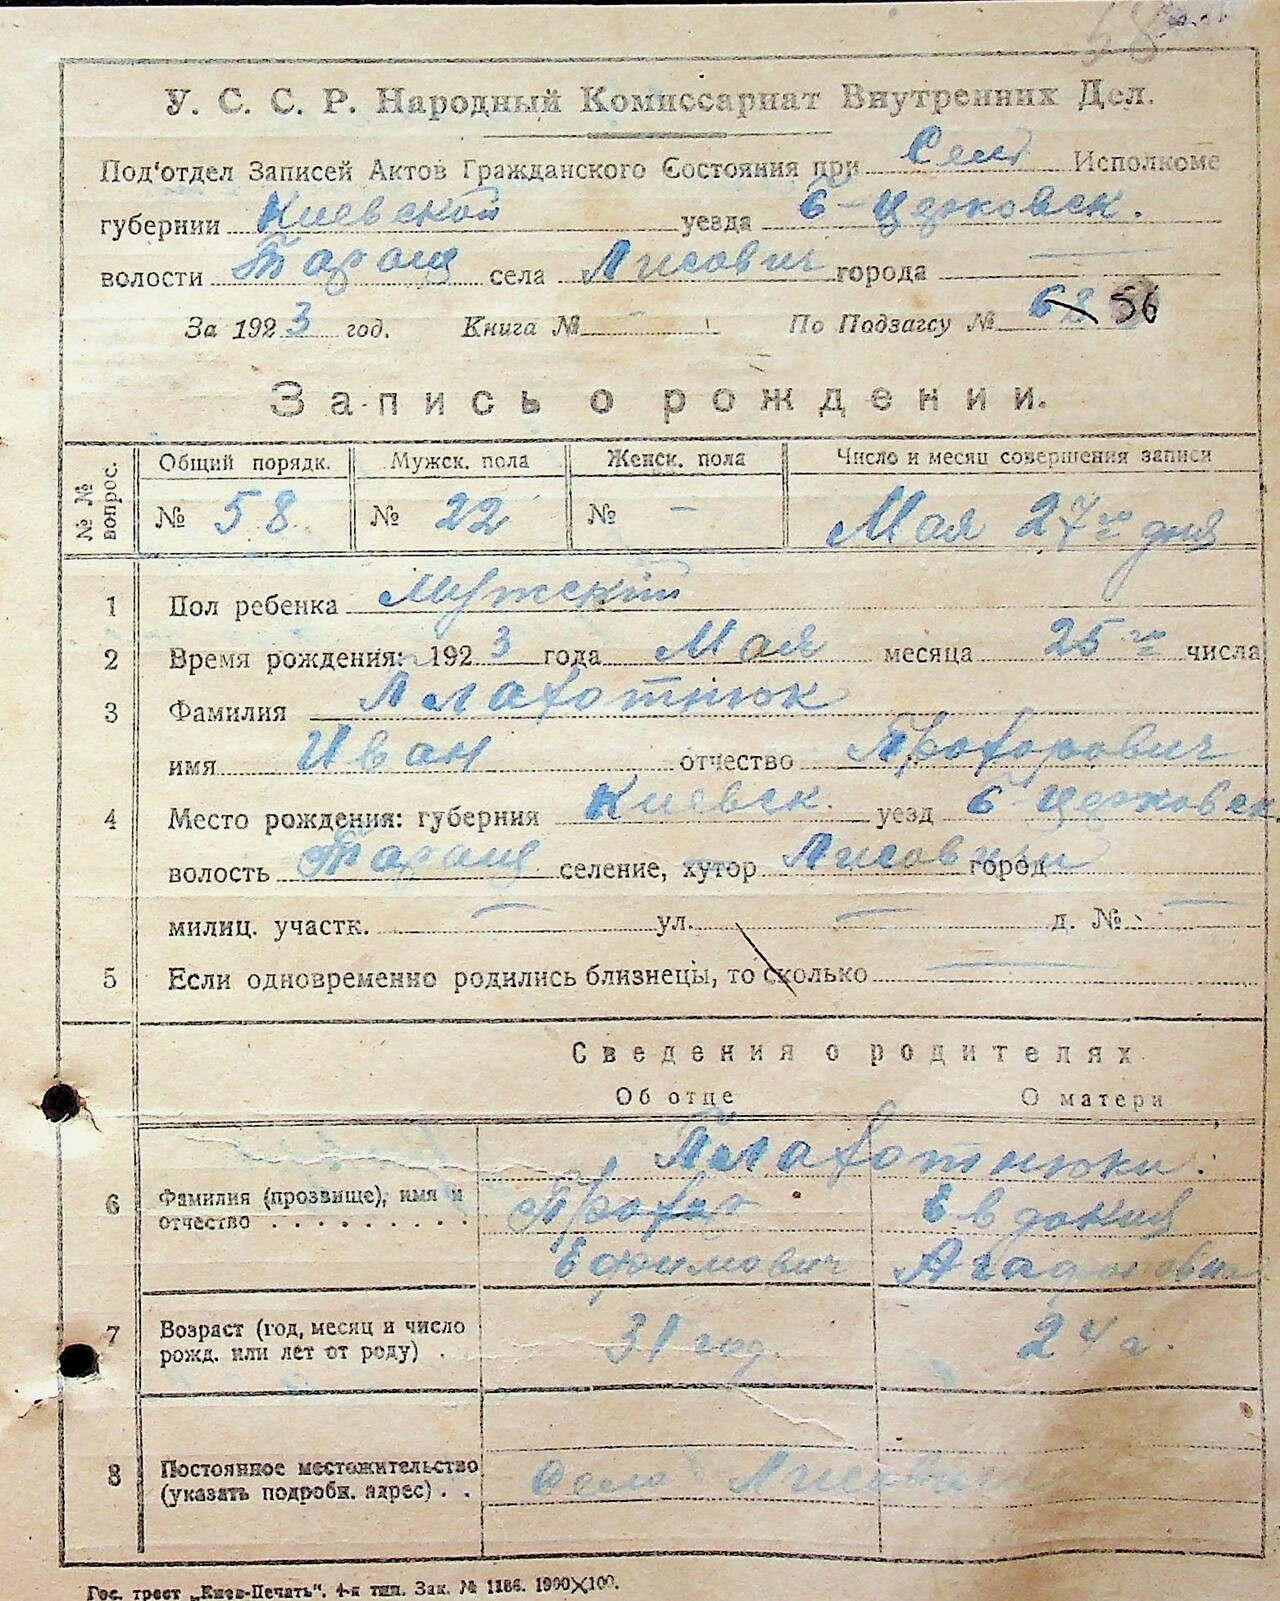 58
У. С. С. Р. Народный Комиссариат Внутренних Дел.
Под'отдел Записей Актов Гражданского Состояния при Сель Исполкоме
губернии Киевской уезда Б-Церковск.
волости Таращ села Лисович города —
За 1923 год. Книга № - По Подзагсу № 68 56
Запись о рождении.
№ № вопрос. Общий порядк. Мужск. пола Женск. пола Число и месяц совершения записи
№ 58 № 22 № — Мая 27го дня
1 Пол ребенка Мужский
2 Время рождения: 1923 года Мая месяца 25го числа
3 Фамилия Плахотнюк
имя Иван отчество Прохорович
4 Место рождения: губерния Киевск. уезд Б-Церковск.
волость Таращ селение, хутор Лисовичи город
милиц. участк. — ул. — д. № —
5 Если одновременно родились близнецы, то сколько —
Сведения о родителях
Об отце О матери
Плахотнюки.
6 Фамилия (прозвище), имя и отчество . . . . . . . . . . Прохор Евдокия
Ефимович Агафоновна
7 Возраст (год, месяц и число рожд. или лет от роду) . 31 год. 24 г.
8 Постоянное местожительство (указать подробн. адрес) . . Село Лисовичи
Гос. трест „Киев-Печать“. 4-я тип. Зак. № 1186. 1900×100.